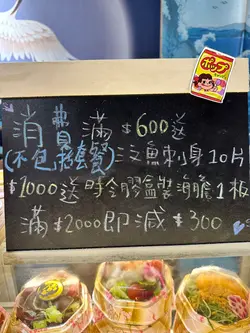 ポップ
消費滿$600送
(不包括套餐)三文魚刺身10片
$1000送時令膠盒裝海膽1板
滿$2000即減$300